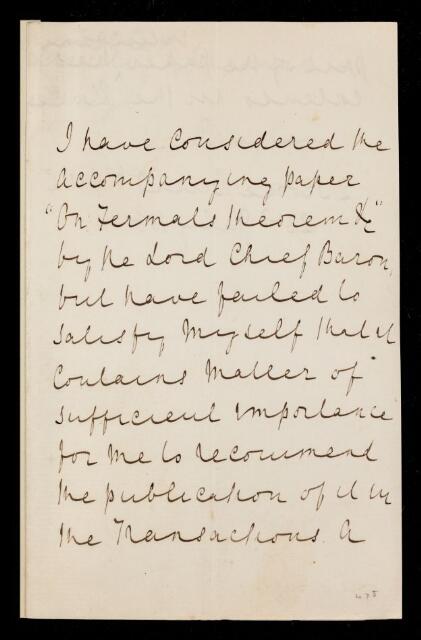 I have considered the
accompanying paper
"On Fermats theorem &c"
by the Lord Chief Baron,
but have failed to
satisfy myself that it
contains matter of
sufficient importance
for me to recommend
the publication of it in
the Transactions. A
475